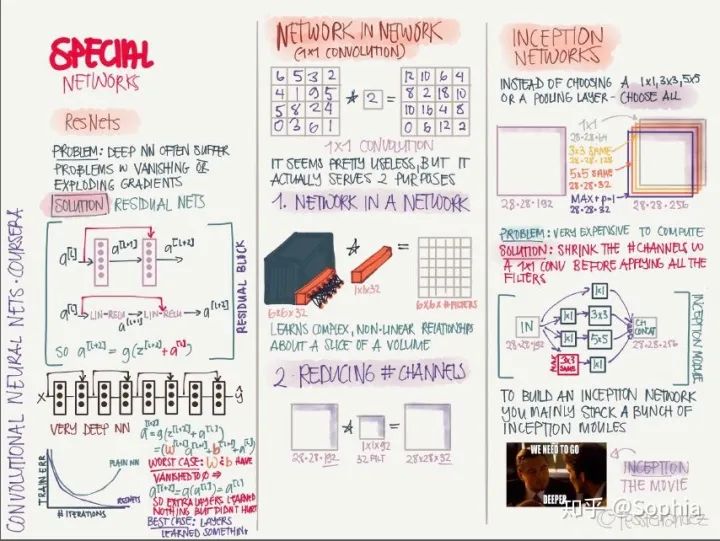 CONVOLUTIONAL NEURAL NETS • COURSERA
SPECIAL
NETWORKS
ResNets
PROBLEM: DEEP NN OFTEN SUFFER
PROBLEMS W VANISHING OR
EXPLODING GRADIENTS
SOLUTION RESIDUAL NETS
a[l] a[l+1] a[l+2]
a[l] LIN-RELU LIN-RELU a[l+2]
a[l+1]
SO a[l+2] = g(z[l+2] + a[l])
RESIDUAL BLOCK
X ŷ
VERY DEEP NN
a[l+2] = g(z[l+2] + a[l])
= (w[l+2] a[l+1] + b[l+2] + a[l])
TRAIN ERR
PLAIN NN
RESNETS
# ITERATIONS
WORST CASE: W & b HAVE
VANISHED TO 0 ⇒
a[l+2] = g(a[l]) = a[l]
SO EXTRA LAYERS LEARNED
NOTHING BUT DIDNT HURT
BEST CASE: LAYERS
LEARNED SOMETHING
NETWORK IN NETWORK
(1X1 CONVOLUTION)
6 5 3 2
4 1 9 5
5 8 2 4
0 3 6 1
* 2 =
12 10 6 4
8 2 18 10
10 16 4 8
0 6 12 2
1X1 CONVOLUTION
IT SEEMS PRETTY USELESS, BUT IT
ACTUALLY SERVES 2 PURPOSES
1. NETWORK IN A NETWORK
* =
6x6x32
1x1x32
6x6x#FILTERS
LEARNS COMPLEX, NON-LINEAR RELATIONSHIPS
ABOUT A SLICE OF A VOLUME
2. REDUCING # CHANNELS
* =
28•28•192
1x1x192
32 FILT
28x28x32
INCEPTION
NETWORKS
INSTEAD OF CHOOSING A 1X1, 3X3, 5X5
OR A POOLING LAYER - CHOOSE ALL
1x1
28•28•64
3x3 SAME
28•28•128
5x5 SAME
28•28•32
MAX+P=1
28•28•32
28•28•192
28•28•256
PROBLEM: VERY EXPENSIVE TO COMPUTE
SOLUTION: SHRINK THE #CHANNELS W
A 1X1 CONV BEFORE APPLYING ALL THE
FILTERS
1x1
IN 1x1 3x3 CH CONCAT
28•28•192 1x1 5x5 28•28•256
3x3 SAME 1x1
INCEPTION MODULE
TO BUILD AN INCEPTION NETWORK
YOU MAINLY STACK A BUNCH OF
INCEPTION MOULES
WE NEED TO GO
DEEPER
INCEPTION
THE MOVIE
知乎 @Sophia